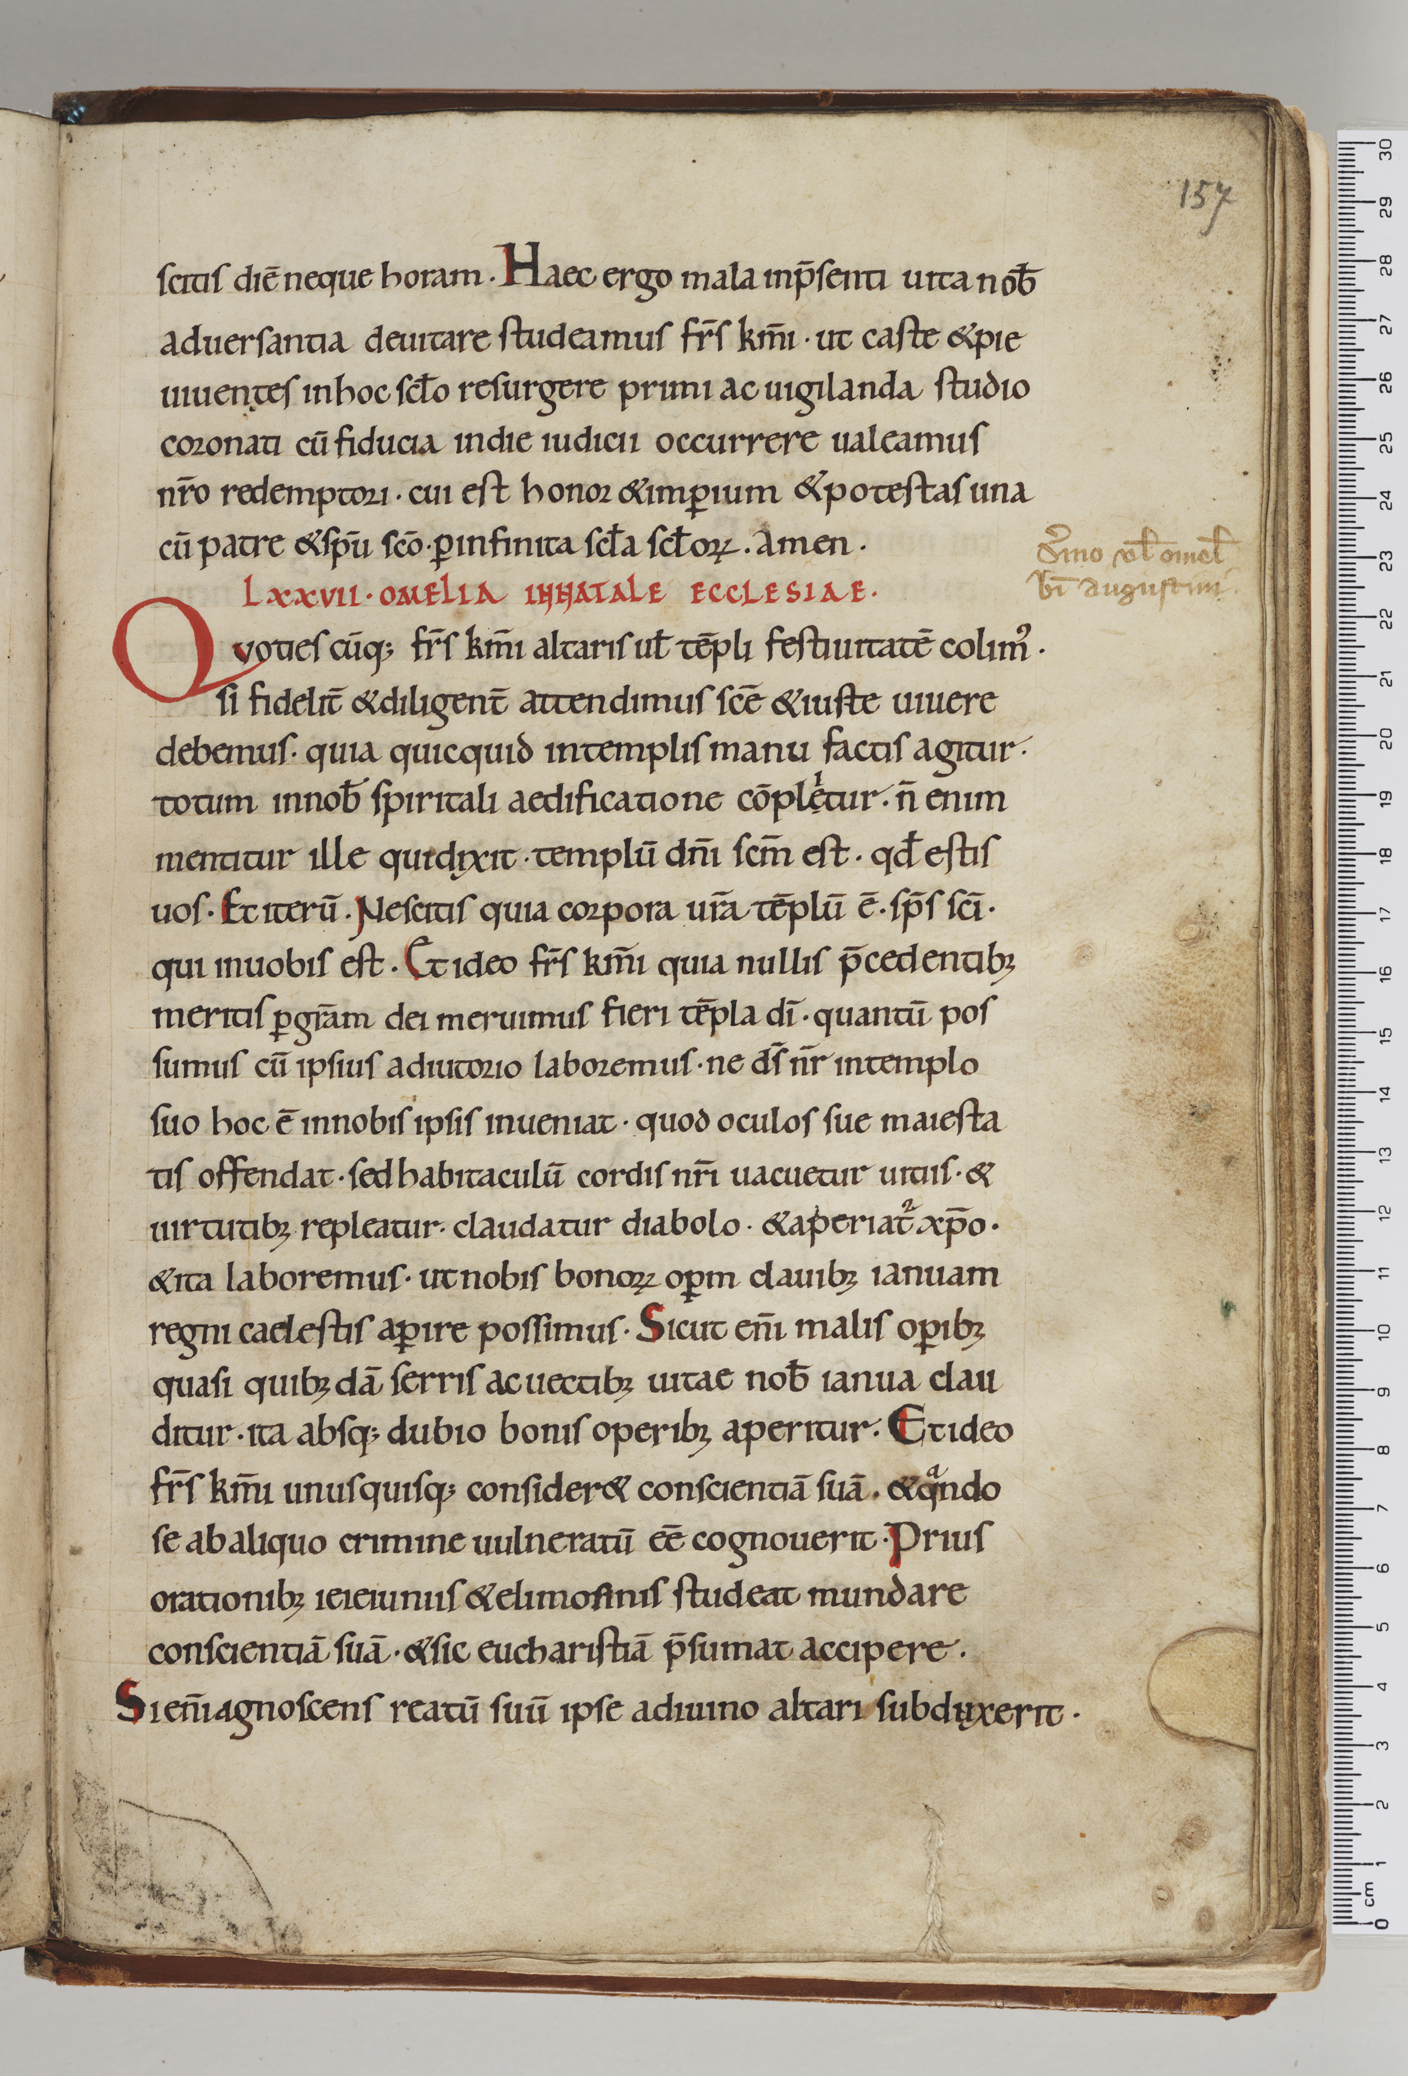 157
scitis diē neque horam. Haec ergo mala inp̄senti uita nob̄
aduersantia deuitare studeamus fr̄s km̄i. ut caste & pie
uiuentes in hoc scƚo resurgere primi ac uigilanda studio
coronati cū fiducia in die iudicii occurrere ualeamus
nr̄o redemptori. cui est honor & imꝑium & potestas una
cū patre & sp̄u scō. ꝑ infinita scƚa scƚoꝝ. Amen.
LXXVII. OMELIA IN NATALE ECCLESIAE.
Sermo uƚ omeƚ
bī augustini.
Quotiescūq; fr̄s km̄i altaris uƚ tēpli festiuitatē colimꝰ.
si fidelit̄ & diligent̄ attendimus scē & iuste uiuere
debemus. quia quicquid in templis manu factis agitur.
totum in nob̄ spiritali aedificatione cōplẹitur. n̄ enim
mentitur ille qui dixit. templū dn̄i scm̄ est. qđ estis
uos. Et iterū. Nescitis quia corpora ur̄a tēplū ē. sp̄s scī.
qui in uobis est. Et ideo fr̄s km̄i quia nullis p̄cedentibꝫ
meritis ꝑ gr̄am dei meruimus fieri tēpla dī. quantū pos
sumus cū ipsius adiutorio laboremus. ne ds̄ nr̄ in templo
suo hoc ē in nobis ipsis inueniat. quod oculos sue maiesta
tis offendat. sed habitaculū cordis nr̄i uacuetur uitiis. &
uirtutibꝫ repleatur. claudatur diabolo. & aperiat᷑ xp̄o.
& ita laboremus. ut nobis bonoꝝ oꝑm clauibꝫ ianuam
regni caelestis aꝑire possimus. Sicut eni̅ malis oꝑibꝫ
quasi quibꝫdā serris ac uectibꝫ uitae nob̄ ianua clau
ditur. ita absq; dubio bonis operibꝫ aperitur. Et ideo
fr̄s km̄i unusquisq; consider& conscientiā suā. & qͣndo
se ab aliquo crimine uulneratū eē cognouerit. Prius
orationibꝫ ieieiuniis & elimosinis studeat mundare
conscientiā suā. & sic eucharistiā p̄sumat accipere.
Si eni̅ agnoscens reatū suū ipse a diuino altari subduxerit.
30
29
28
27
26
25
24
23
22
21
20
19
18
17
16
15
14
13
12
11
10
9
8
7
6
5
4
3
2
1
cm
0